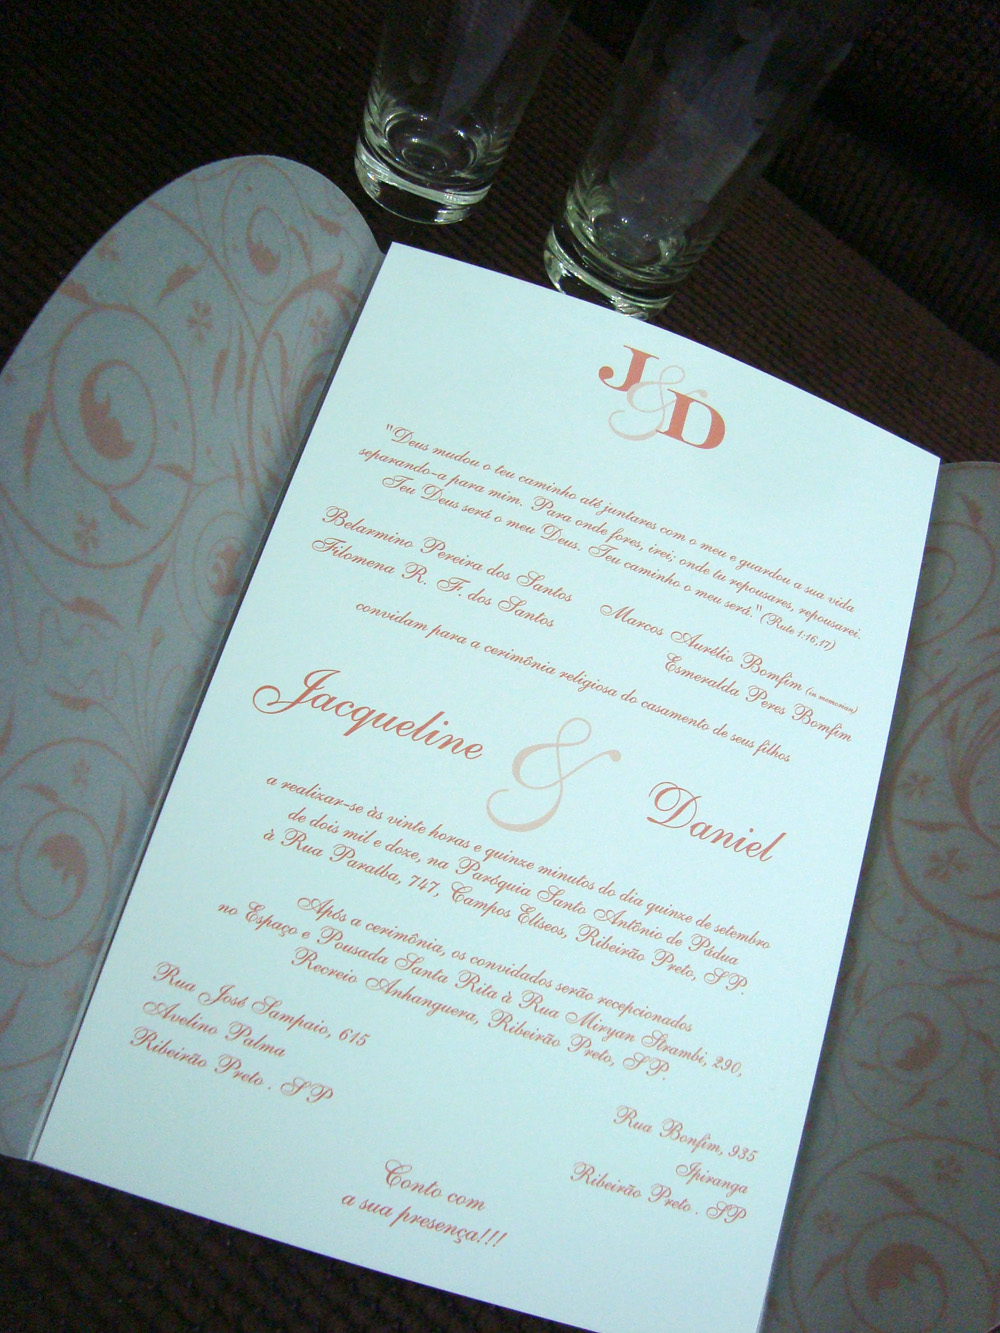 J&D
"Deus mudou o teu caminho até juntares com o meu e guardou a sua vida
separando-a para mim. Para onde fores, irei; onde tu repousares, repousarei.
Teu Deus será o meu Deus. Teu caminho o meu será." (Rute 1:16,17)
Belarmino Pereira dos Santos
Filomena R. F. dos Santos
Marcos Aurélio Bomfim (in memorian)
Esmeralda Peres Bomfim
convidam para a cerimônia religiosa do casamento de seus filhos
Jacqueline & Daniel
a realizar-se às vinte horas e quinze minutos do dia quinze de setembro
de dois mil e doze, na Paróquia Santo Antônio de Pádua
à Rua Paraíba, 747, Campos Elíseos, Ribeirão Preto, SP.
Após a cerimônia, os convidados serão recepcionados
no Espaço e Pousada Santa Rita à Rua Miryan Strambi, 290,
Recreio Anhanguera, Ribeirão Preto, SP.
Rua José Sampaio, 615
Avelino Palma
Ribeirão Preto . SP
Rua Bonfim, 935
Ipiranga
Ribeirão Preto . SP
Conto com
a sua presença!!!